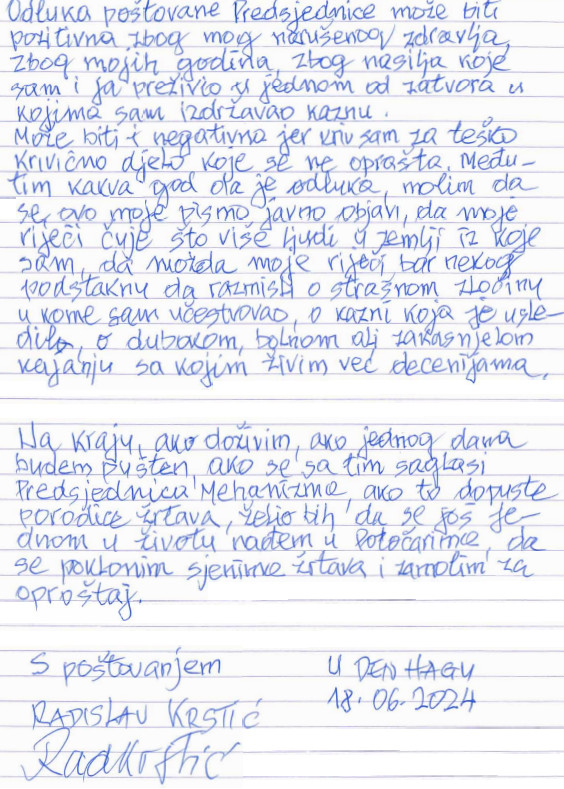 Odluka poštovane Predsjednice može biti
pozitivna zbog mog narušenog zdravlja,
zbog mojih godina, zbog nasilja koje
sam i ja preživio u jednom od zatvora u
kojima sam izdržavao kaznu.
Može biti i negativna jer kriv sam za teško
krivično djelo koje se ne oprašta. Među-
tim kakva god da je odluka, molim da
se ovo moje pismo javno objavi, da moje
riječi čuje što više ljudi u zemlji iz koje
sam, da možda moje riječi bar nekog
podstaknu da razmisli o strašnom zločinu
u kome sam učestvovao, o kazni koja je usle-
dila, o dubokom, bolnom ali zakasnjelom
kajanju sa kojim živim već decenijama.
Na kraju, ako doživim, ako jednog dana
budem pušten, ako se sa tim saglasi
Predsjednica Mehanizma, ako to dopuste
porodice žrtava, želio bih da se još je-
dnom u životu nađem u Potočarima, da
se poklonim sjenima žrtava i zamolim za
oproštaj.
S poštovanjem
U DEN HAGU
RADISLAV KRSTIĆ
18.06.2024
RadKrstić